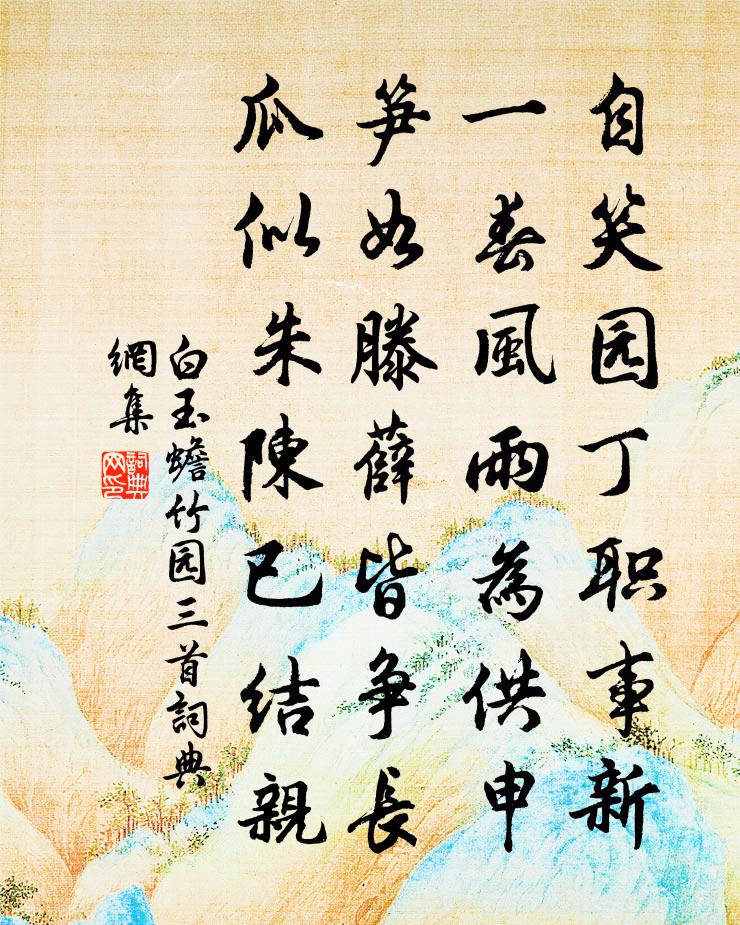 自笑园丁职事新
一春風雨為供申
笋如滕薛皆争長
瓜似朱陳已结親
白玉蟾竹园三首詞典
網集
詞典
网